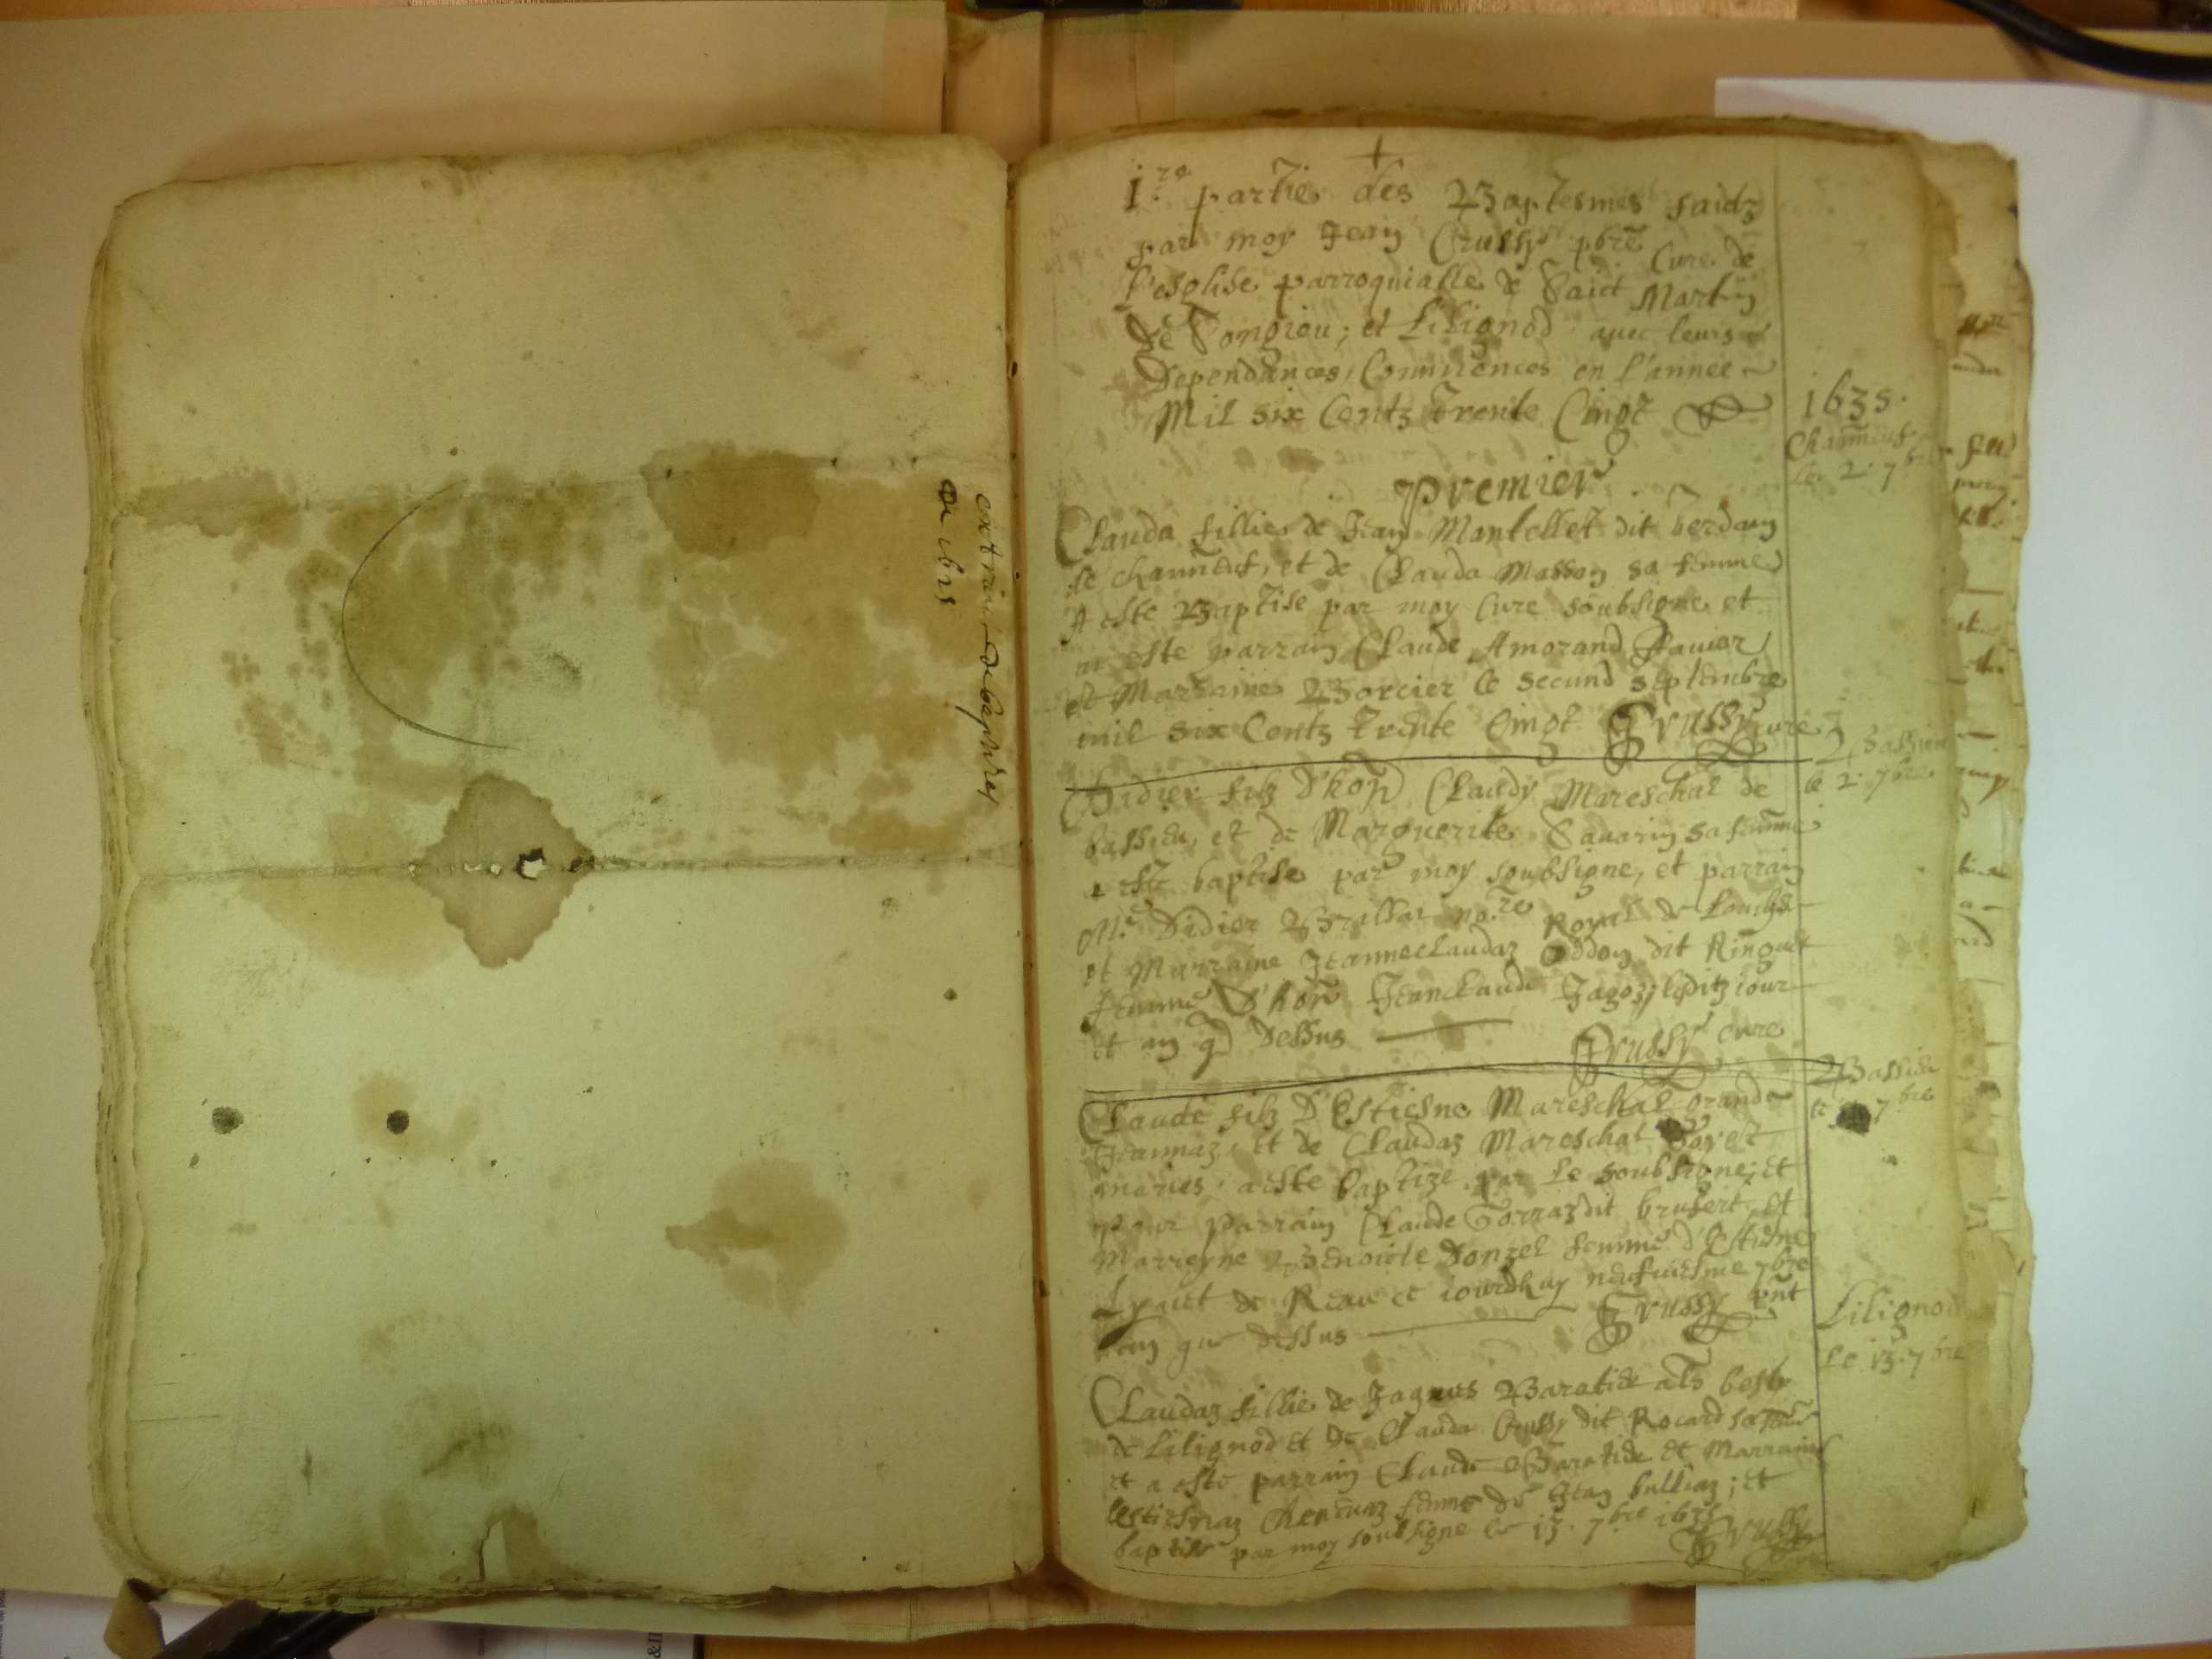 extraict de baptesmes
1.re partie des Baptesmes faictz
par moy Jean Crussy pbre Cure de
l'esglise parroquialle de Sainct Martin
de Songieu, et Lilignod avec leurs
Dependances, Commences en l'annee
Mil six Centz Trente Cinq
1635.
Premier
le 2. 7bre
Clauda fillie de Jean Mantellet dit berdam
de channeuf, et de Clauda Masson sa femme
A este Baptise par moy Cure soubsigne et
a este parrain Claude Amorand Favier
et Marraine Borcier le second septembre
mil six Centz Trente Cinq Crussy cure
Bassieu
le 2. 7bre
Didier filz d'hon Claudy Mareschal de
bassieu, et de Marguerite Savarin sa femme
a este baptise par moy soubsigne, et parrain
Me Didier Brillat no.re Royal de
et Marraine Jeanneclaudaz Oddon dit Ringuet
femme d'hon Jeanclaude Jagoz, lesditz iour
et an q dessus Crussy cure
Bassieu
le 7bre
Claude filz d'Estiesne Mareschal grand
Jeannaz, et de Claudaz Mareschal
maries, a este baptize par le soubsigne, et
pour parrain Claude Gorraz dit brusert, et
Marreyne Benoicte Donzel femme d'Estiene
de et iourdhuy neufuiesme 7bre
an que dessus Crussy pnt
Lilignod
le 13. 7bre
Claudaz fillie de Jaques Baratide als
de Lilignod et de Clauda Crussy dit Rocard sa
et a este parrain Claude Baratide et Marraine
Lestiesnaz femme de Jean bulliaz; et
baptise par moy soubsigne le 13. 7bre 1635 Crussy